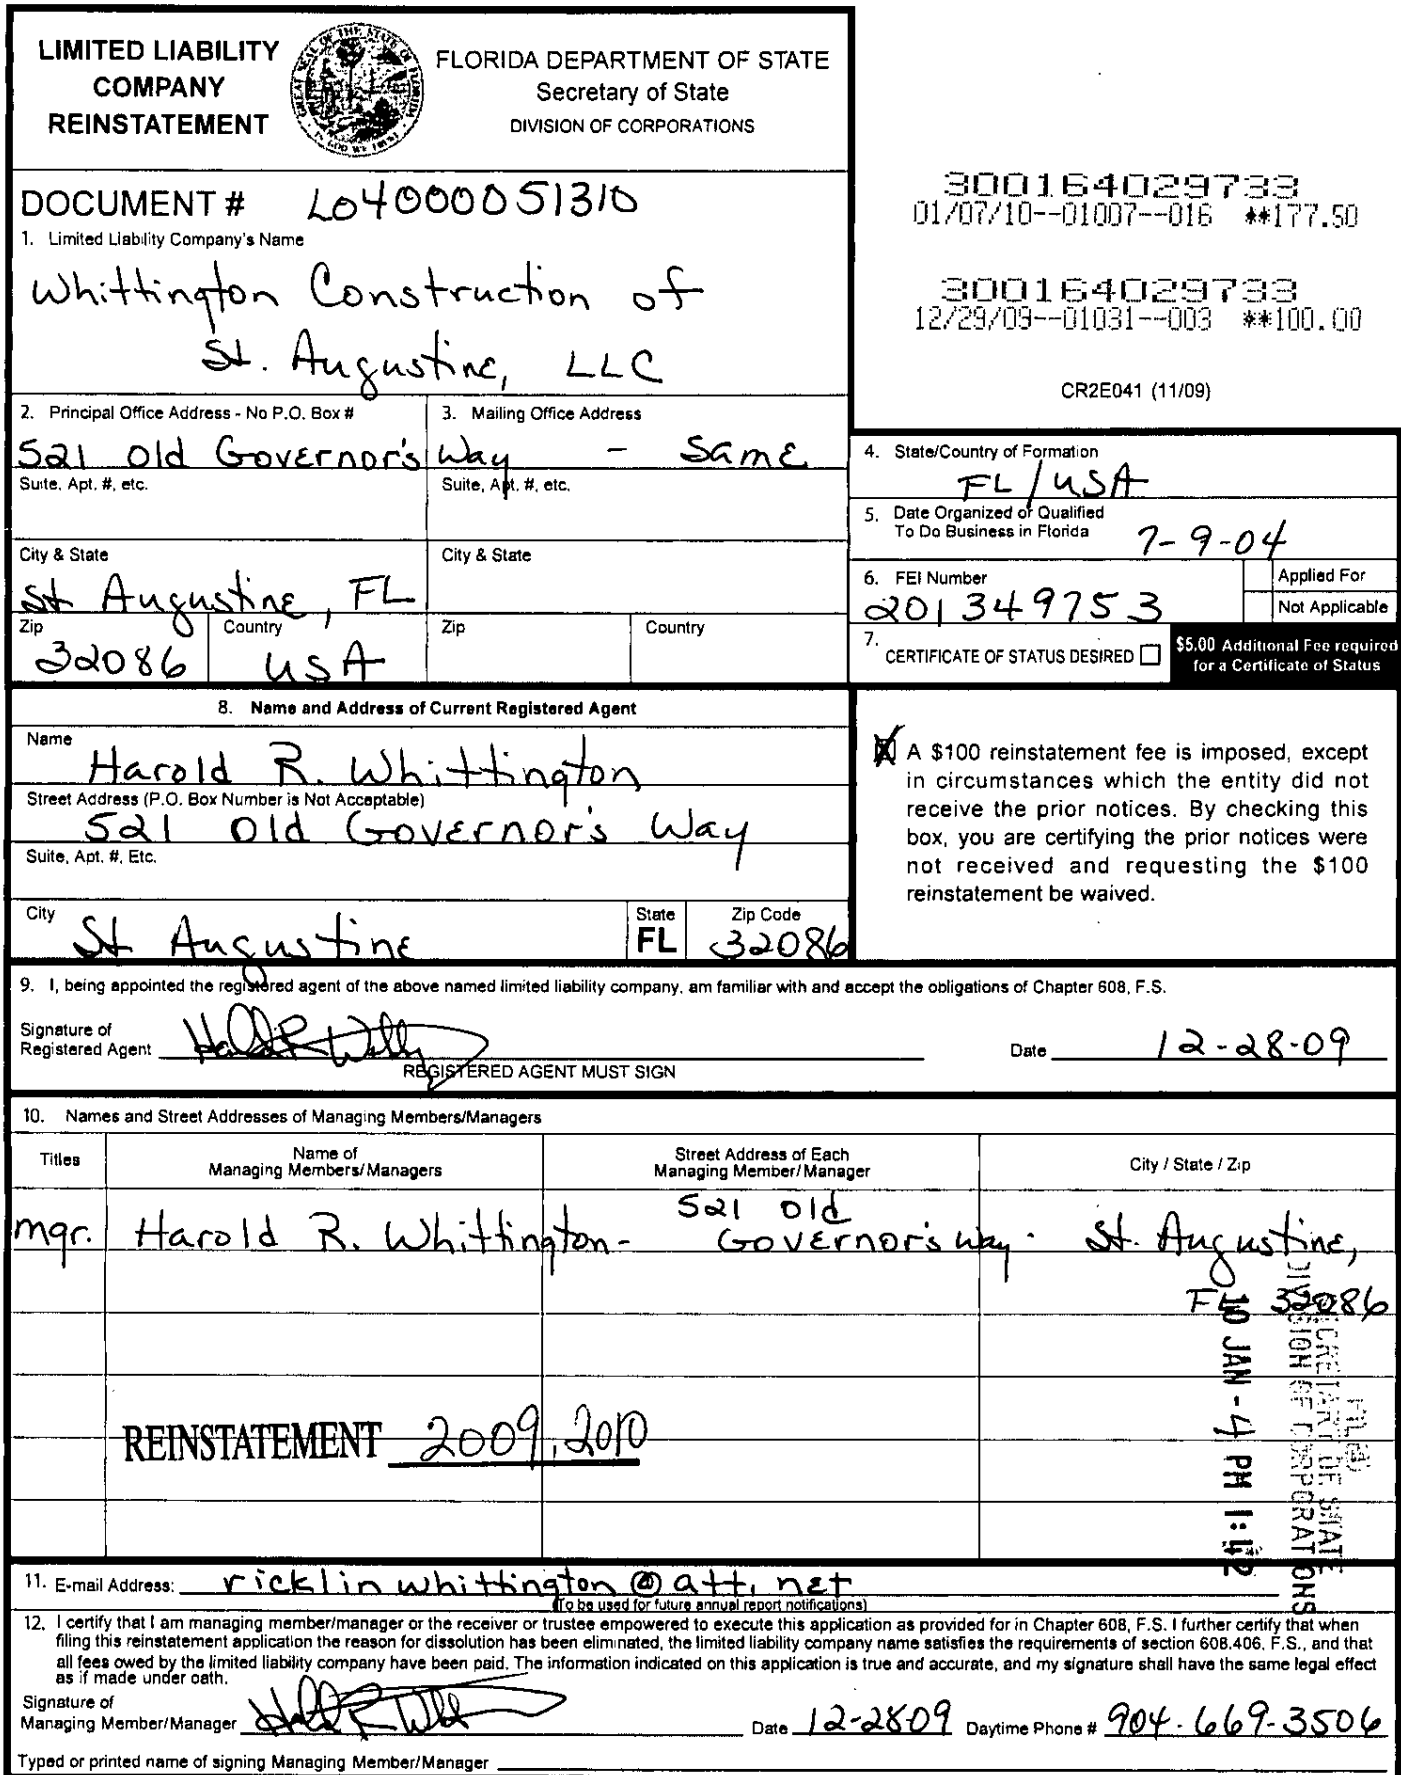 LIMITED LIABILITY
COMPANY
REINSTATEMENT
GREAT SEAL OF THE STATE OF FLORIDA
IN GOD WE TRUST
FLORIDA DEPARTMENT OF STATE
Secretary of State
DIVISION OF CORPORATIONS
DOCUMENT # L04000051310
300164029733
01/07/10--01007--016 **177.50
300164029733
12/29/09--01031--003 **100.00
CR2E041 (11/09)
1. Limited Liability Company's Name
Whittington Construction of
St. Augustine, LLC
2. Principal Office Address - No P.O. Box #
3. Mailing Office Address
521 Old Governor's Way - Same
Suite, Apt. #, etc.
Suite, Apt. #, etc.
City & State
City & State
St Augustine, FL
Zip
Country
Zip
Country
32086 USA
4. State/Country of Formation
FL/USA
5. Date Organized or Qualified
To Do Business in Florida 7-9-04
6. FEI Number
201349753
Applied For
Not Applicable
7. CERTIFICATE OF STATUS DESIRED
$5.00 Additional Fee required
for a Certificate of Status
8. Name and Address of Current Registered Agent
Name
Harold R. Whittington
Street Address (P.O. Box Number is Not Acceptable)
521 Old Governor's Way
Suite, Apt. #, Etc.
City St Augustine
State
FL
Zip Code
32086
X A $100 reinstatement fee is imposed, except
in circumstances which the entity did not
receive the prior notices. By checking this
box, you are certifying the prior notices were
not received and requesting the $100
reinstatement be waived.
9. I, being appointed the registered agent of the above named limited liability company, am familiar with and accept the obligations of Chapter 608, F.S.
Signature of
Registered Agent
REGISTERED AGENT MUST SIGN
Date 12-28-09
10. Names and Street Addresses of Managing Members/Managers
Titles
Name of
Managing Members/Managers
Street Address of Each
Managing Member/Manager
City / State / Zip
mgr. Harold R. Whittington - 521 Old
Governor's Way. St. Augustine,
FL 32086
REINSTATEMENT 2009, 2010
FILED
SECRETARY OF STATE
DIVISION OF CORPORATIONS
10 JAN -4 PM 1:42
11. E-mail Address: ricklinwhittington@att.net
(To be used for future annual report notifications)
12. I certify that I am managing member/manager or the receiver or trustee empowered to execute this application as provided for in Chapter 608, F.S. I further certify that when
filing this reinstatement application the reason for dissolution has been eliminated, the limited liability company name satisfies the requirements of section 608.406, F.S., and that
all fees owed by the limited liability company have been paid. The information indicated on this application is true and accurate, and my signature shall have the same legal effect
as if made under oath.
Signature of
Managing Member/Manager
Date 12-28-09 Daytime Phone # 904-669-3506
Typed or printed name of signing Managing Member/Manager